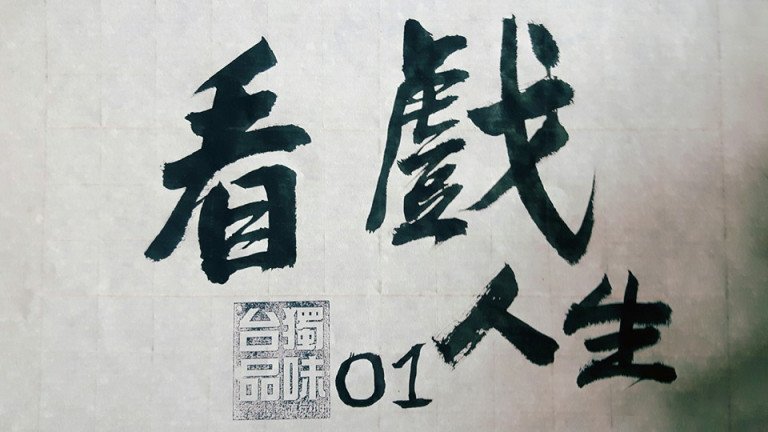 看戲
人生
01
台獨
品味